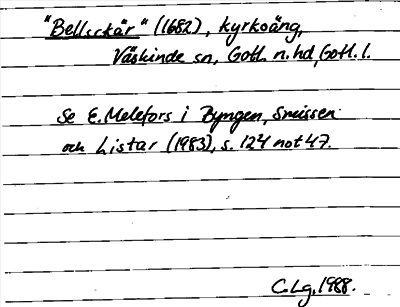 "Bellsckär" (1682), kyrkoäng,
Väskinde sn, Gotl. n. hd, Gotl. l.
Se E. Melefors i Byngen, Smissen
och Listar (1983), s. 124 not 47.
C. Lg, 1988.